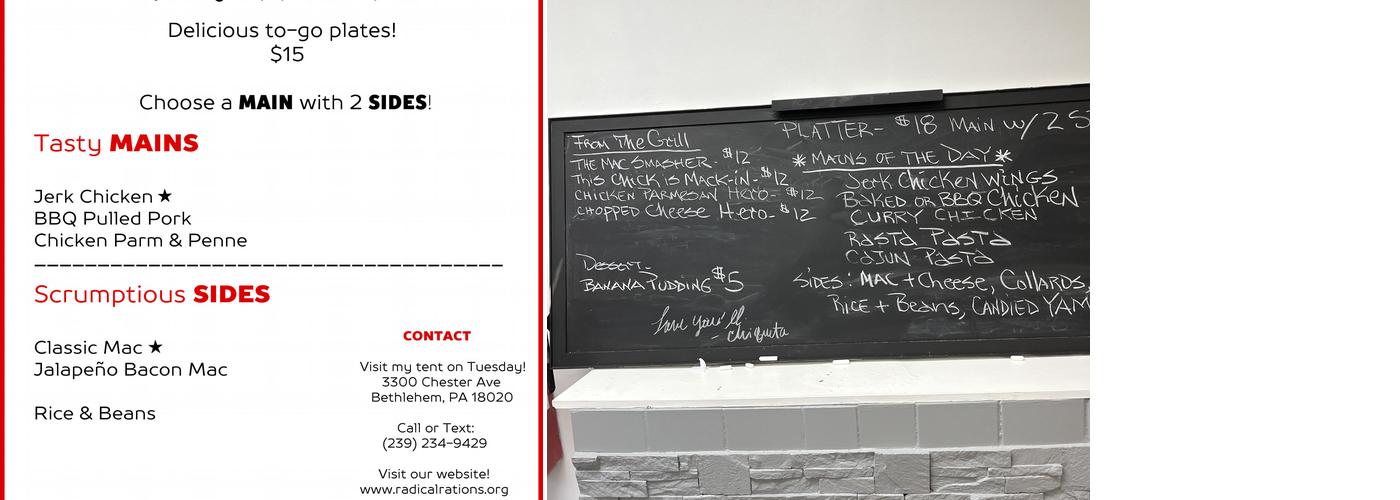 Delicious to-go plates!
$15
Choose a MAIN with 2 SIDES!
Tasty MAINS
Jerk Chicken ★
BBQ Pulled Pork
Chicken Parm & Penne
Scrumptious SIDES
Classic Mac ★
Jalapeño Bacon Mac
Rice & Beans
CONTACT
Visit my tent on Tuesday!
3300 Chester Ave
Bethlehem, PA 18020
Call or Text:
(239) 234-9429
Visit our website!
www.radicalrations.org
From The Grill
THE MAC SMASHER- $12
This Chick is Mack-in- $12
CHICKEN PARMESAN Hero- $12
CHOPPED Cheese Hero- $12
Dessert-
BANANA PUDDING $5
Love you'll
- Chiquita
PLATTER- $18 MAIN w/ 2
* MAINS OF THE DAY *
Jerk Chicken WINGS
BAKED OR BBQ Chicken
CURRY CHICKEN
RASTA PASTA
CAJUN PASTA
SIDES: MAC + Cheese, Collards,
Rice + Beans, CANDIED YAM